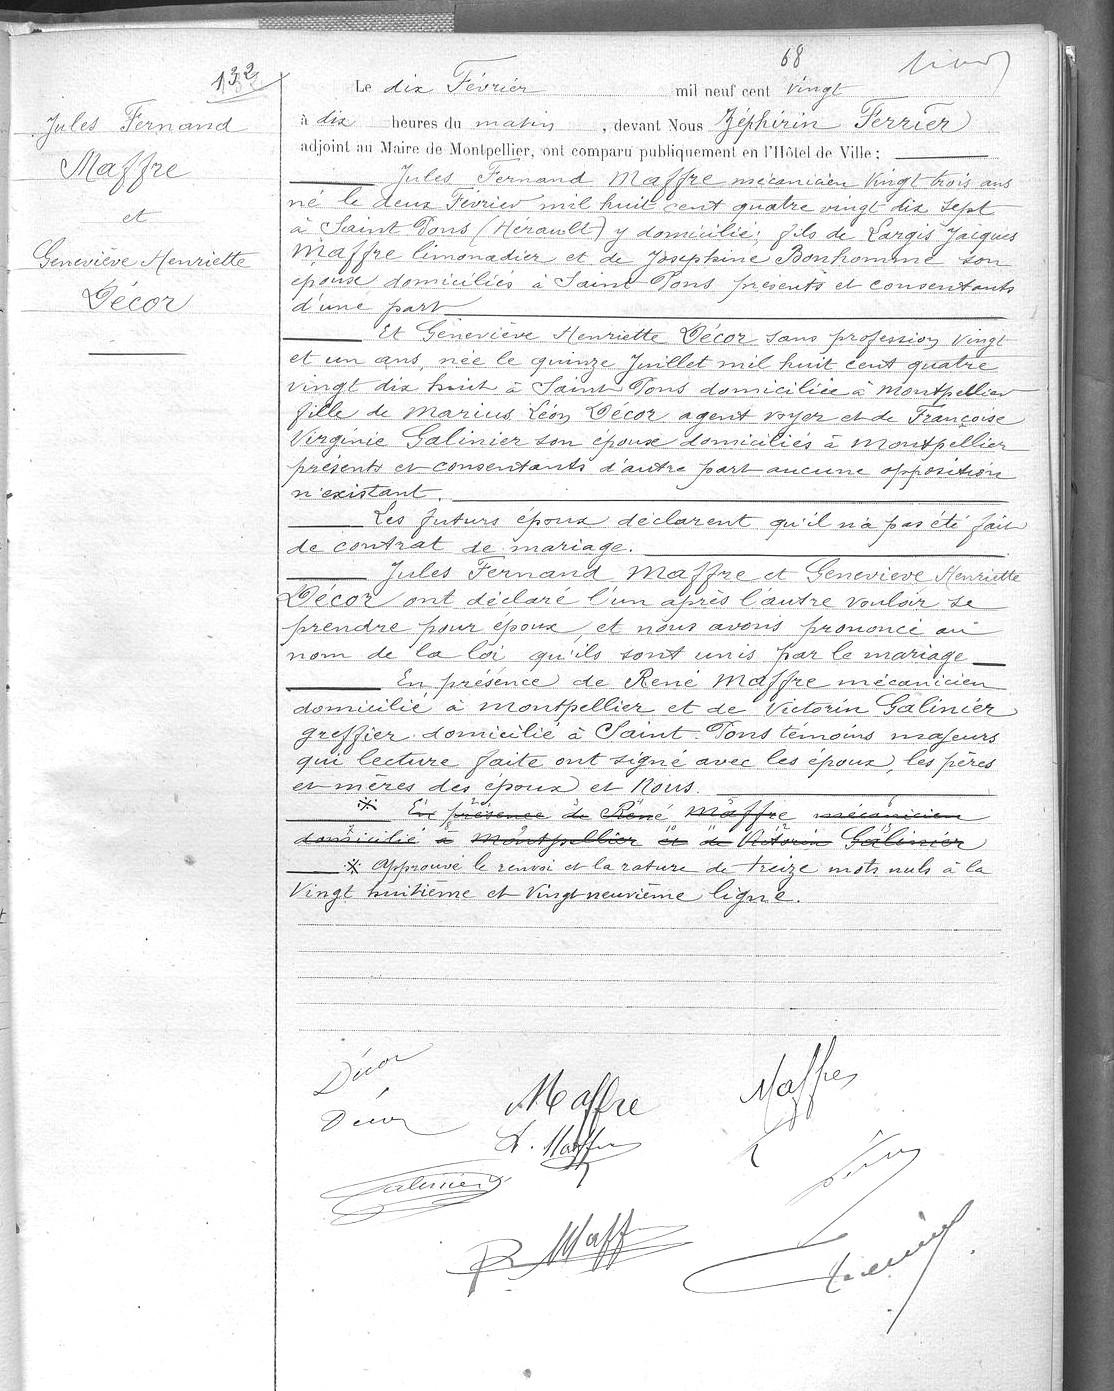 68
132
Jules Fernand
Maffre
et
Geneviève Henriette
Décor
Le dix Février mil neuf cent vingt
à dix heures du matin, devant Nous Zéphirin Ferrier
adjoint au Maire de Montpellier, ont comparu publiquement en l'Hôtel de Ville :
Jules Fernand Maffre mécanicien vingt trois ans
né le deux Février mil huit cent quatre vingt dix sept
à Saint Pons (Hérault) y domicilié; fils de Largis Jacques
Maffre limonadier et de Joséphine Bonhomme son
épouse domiciliés à Saint Pons présents et consentants
d'une part
Et Geneviève Henriette Décor sans profession vingt
et un ans, née le quinze Juillet mil huit cent quatre
vingt dix huit à Saint Pons domiciliée à Montpellier
fille de Marius Léon Décor agent voyer et de Françoise
Virginie Galinier son épouse domiciliés à Montpellier
présents et consentants d'autre part aucune opposition
n'existant.
Les futurs époux déclarent qu'il n'a pas été fait
de contrat de mariage.
Jules Fernand Maffre et Geneviève Henriette
Décor ont déclaré l'un après l'autre vouloir se
prendre pour époux, et nous avons prononcé au
nom de la loi qu'ils sont unis par le mariage
En présence de René Maffre mécanicien
domicilié à Montpellier et de Victorin Galinier
greffier domicilié à Saint-Pons témoins majeurs
qui lecture faite ont signé avec les époux, les pères
et mères des époux et Nous.
※ En présence de René Maffre mécanicien
domicilié à Montpellier et de Victorin Galinier
※ Approuvé le renvoi et la rature de treize mots nuls à la
vingt huitième et vingt-neuvième ligne.
Décor
Maffre
Maffre
Décor
Galinier
R Maff